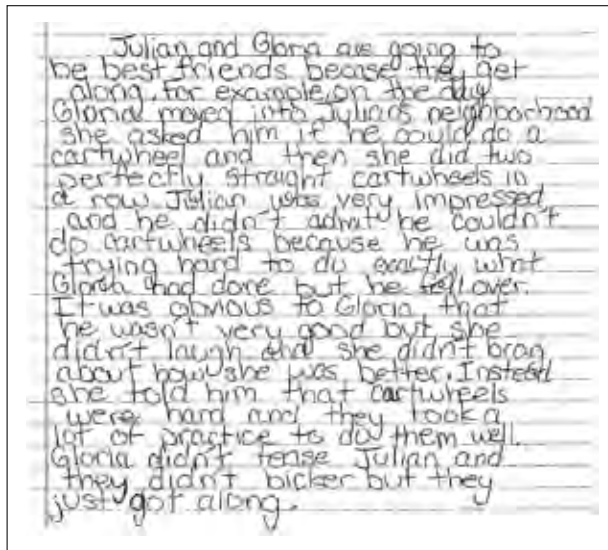 Julian and Gloria are going to
be best friends becase they get
along, for example, on the day
Gloria moved into Julian's neighborhood
she asked him if he could do a
cartwheel and then she did two
perfectly straight cartwheels in
a row. Julian was very impressed
and he didn't admit he couldn't
do cartwheels because he was
trying hard to do exactly what
Gloria had done but he fell over.
It was obvious to Gloria that
he wasn't very good but she
didn't laugh and she didn't brag
about how she was better. Instead
she told him that cartwheels
were hard and they took a
lot of practice to do them well.
Gloria didn't tease Julian and
they didn't bicker but they
just got along.